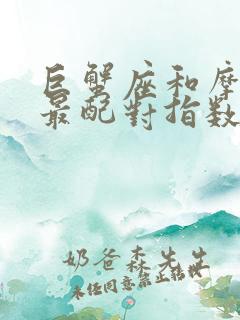 巨蟹座和摩
最配對指数
奶爸森先生
未经同意禁止转载